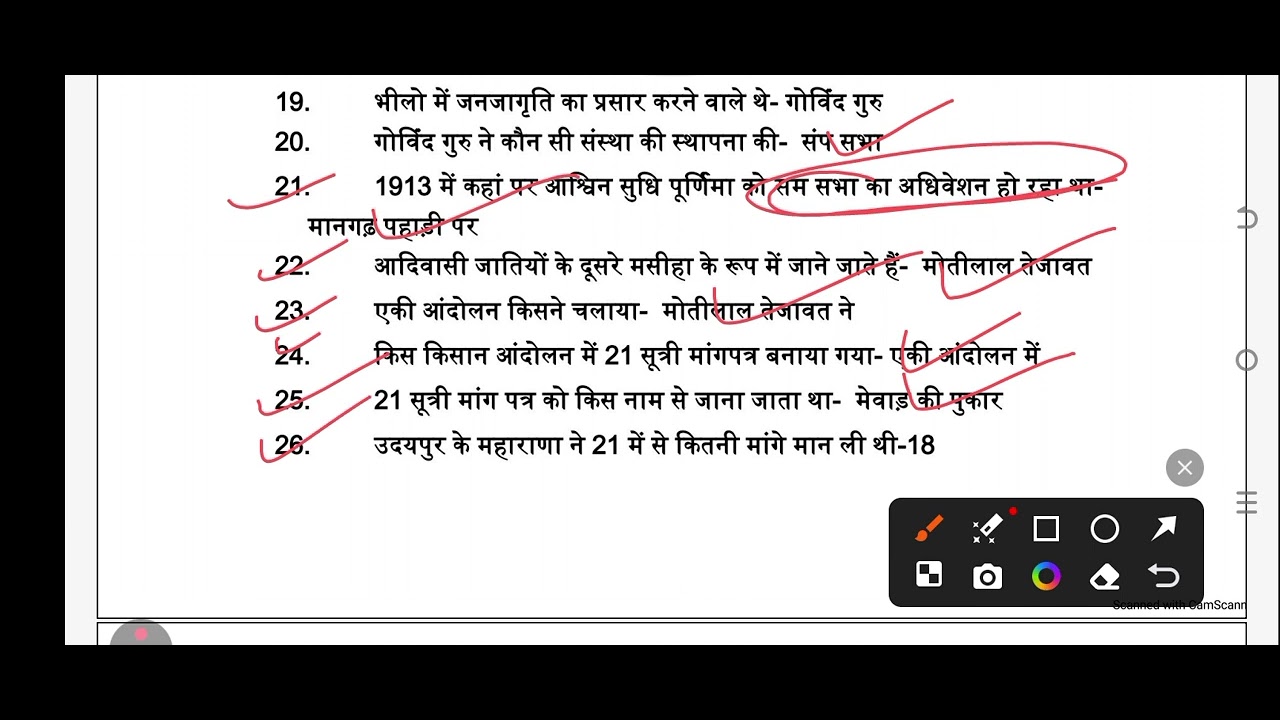 19. भीलो में जनजागृति का प्रसार करने वाले थे- गोविंद गुरु
20. गोविंद गुरु ने कौन सी संस्था की स्थापना की- संप सभा
21. 1913 में कहां पर आश्विन सुधि पूर्णिमा को सम सभा का अधिवेशन हो रहा था-
मानगढ़ पहाड़ी पर
22. आदिवासी जातियों के दूसरे मसीहा के रूप में जाने जाते हैं- मोतीलाल तेजावत
23. एकी आंदोलन किसने चलाया- मोतीलाल तेजावत ने
24. किस किसान आंदोलन में 21 सूत्री मांगपत्र बनाया गया- एकी आंदोलन में
25. 21 सूत्री मांग पत्र को किस नाम से जाना जाता था- मेवाड़ की पुकार
26. उदयपुर के महाराणा ने 21 में से कितनी मांगे मान ली थी-18
Scanned with CamScann